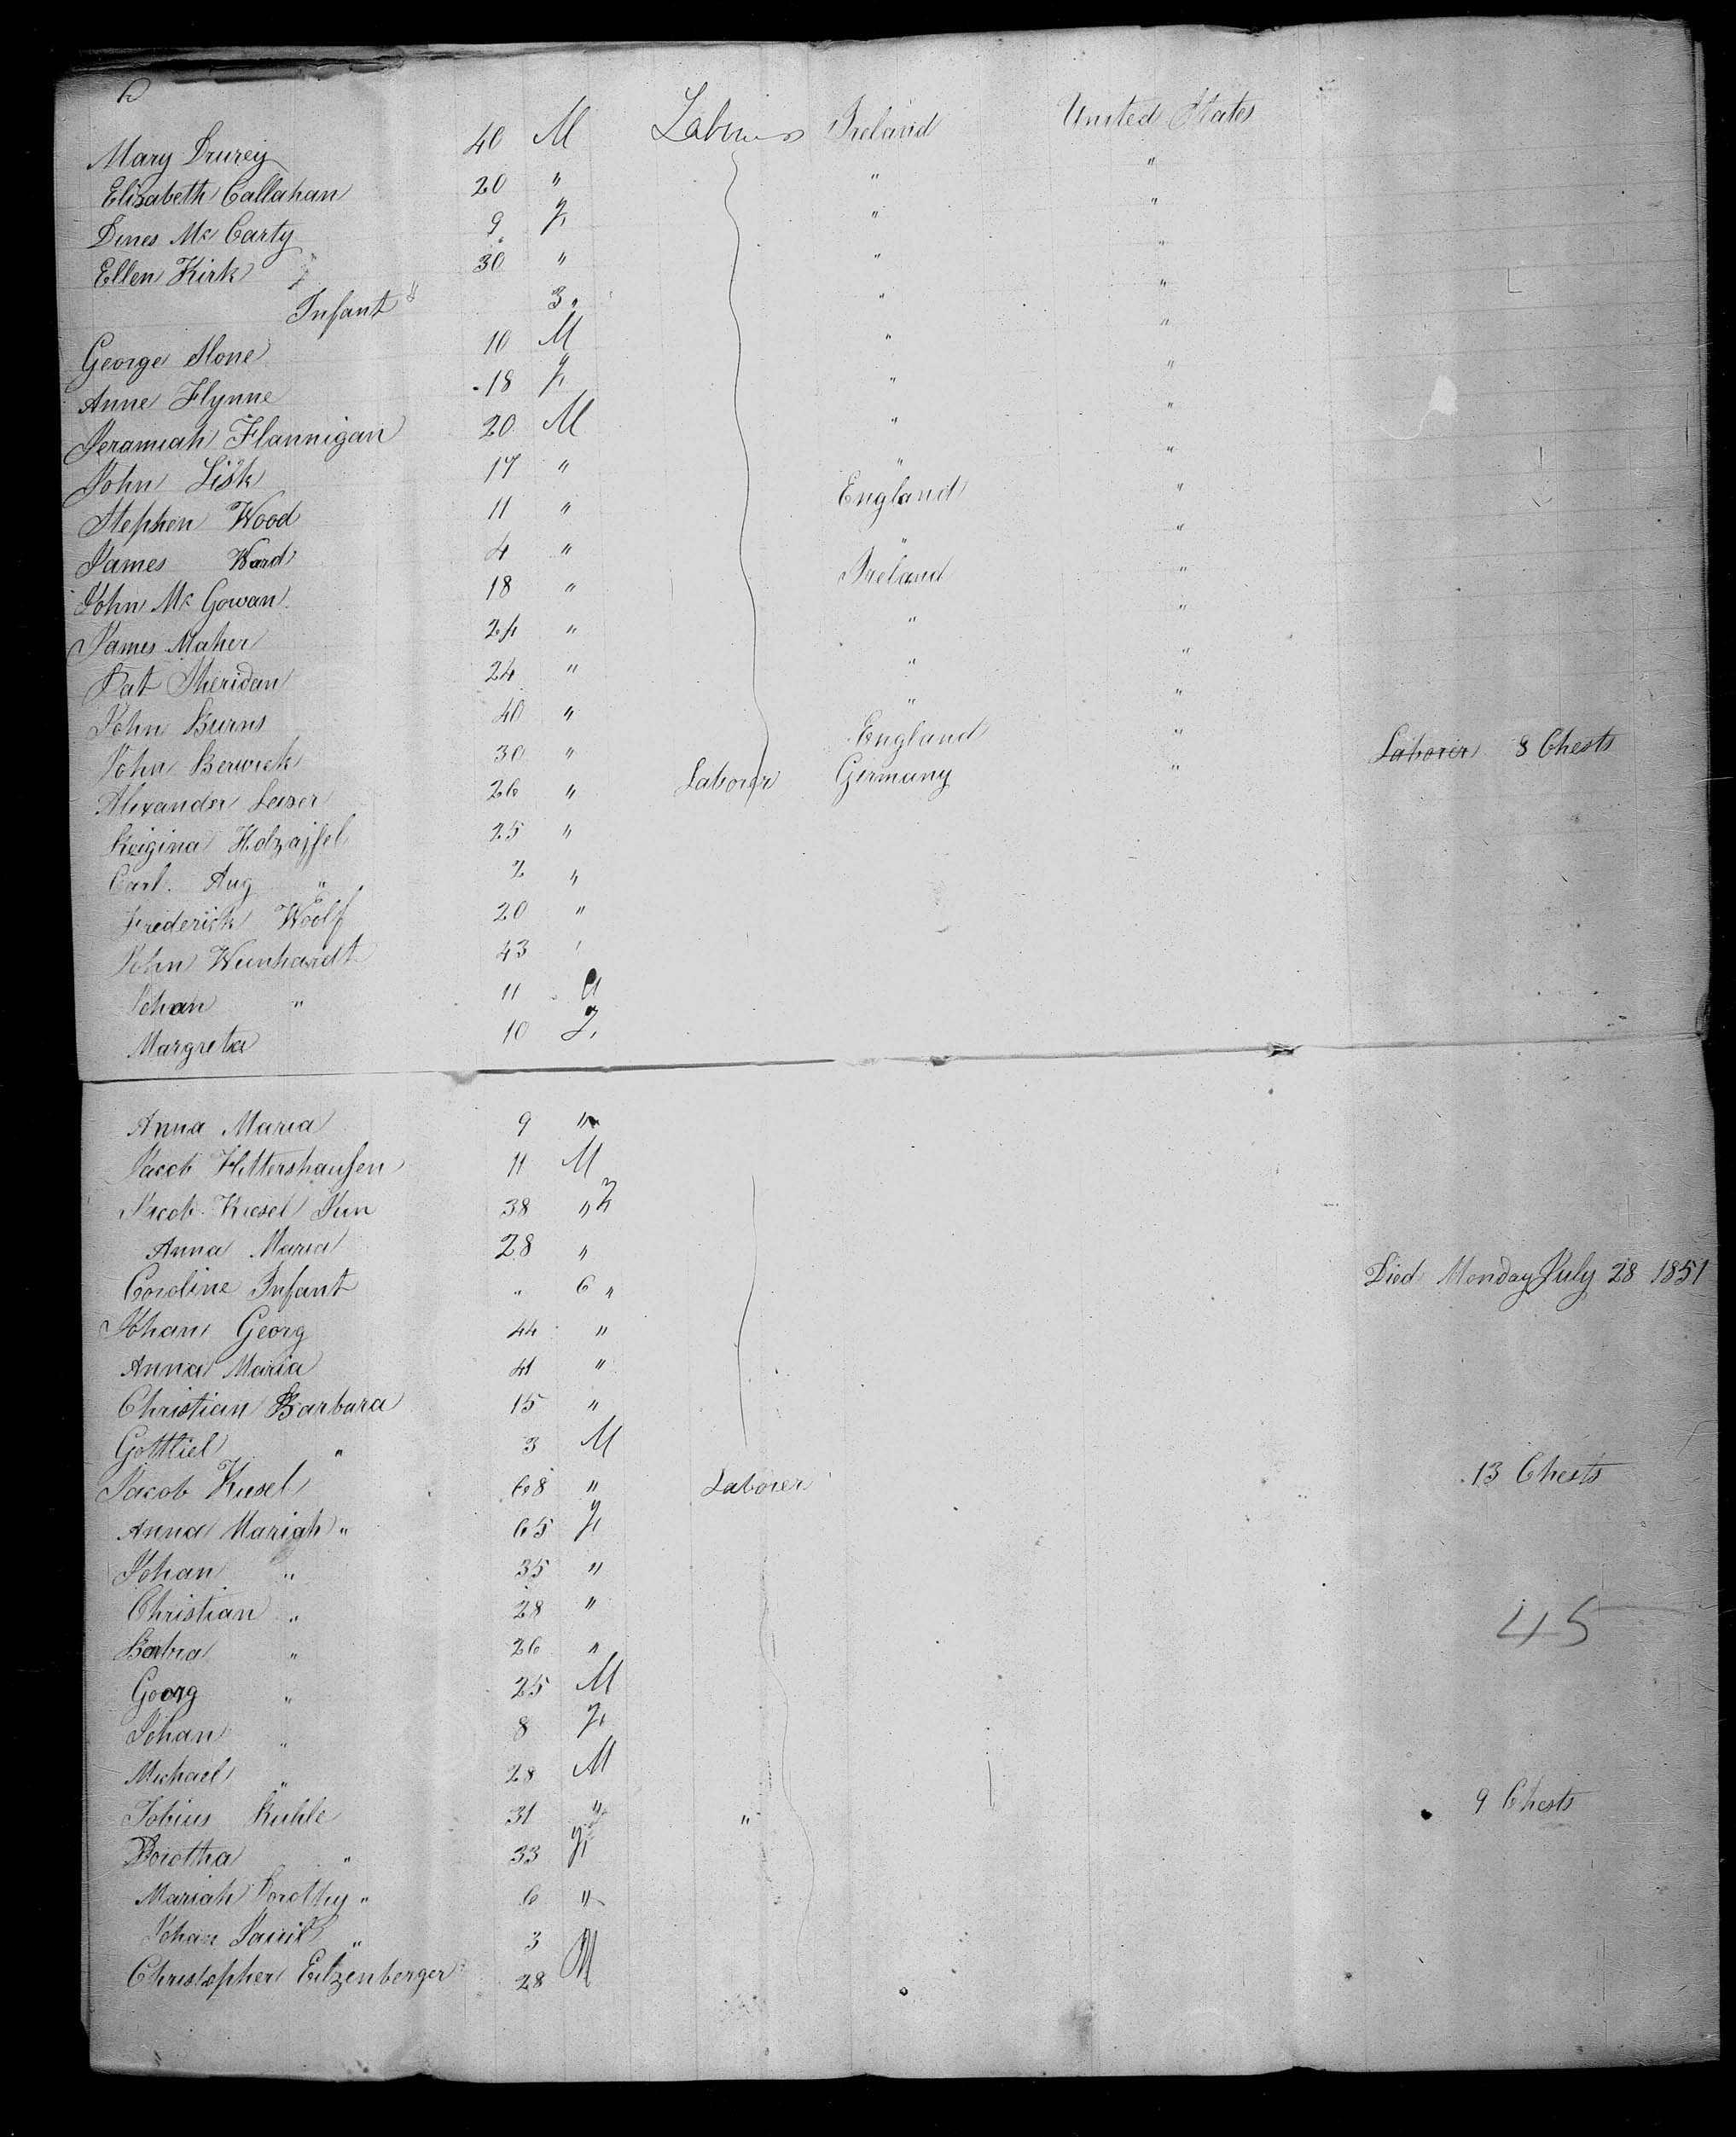 Mary Drurey 40 M Laborers Ireland United States
Elizabeth Callahan 20 " " "
Dines Mc Carty 9 F " "
Ellen Kirk 30 " " "
Infant 3 " " "
George Slone 10 M " "
Anne Flynne 18 F " "
Jeramiah Flannigan 20 M " "
John Lisk 17 " " "
Stephen Wood 11 " England "
James Ward 4 " " "
John Mc Gowan 18 " Ireland "
James Maher 24 " " "
Pat Sheridan 24 " " "
John Burns 40 " " "
John Berwick 30 " England "
Alexander Leiser 26 " Laborer Germany " Laborer 8 Chests
Reigina Holzapfel 25 "
Carl. Aug " 2 "
Frederick Woolf 20 "
John Weinhardt 43 "
Johan " 11
Margreta 10 F
Anna Maria 9 "
Jacob Hittershausen 11 M
Jacob Kiesel Jun 38 " F
Anna Maria 28 "
Caroline Infant " 6 " Died Monday July 28 1851
Johan Georg 44 "
Anna Maria 41 "
Christian Barbara 15 "
Gottliel " 3 M
Jacob Kiesel 68 " Laborer 13 Chests
Anna Mariah " 65 F
Johan " 35 "
Christian " 28 " 45
Barbra " 26 "
Georg " 25 M
Johan " 8 F
Michael " 28 M
Tobius Kuhle 31 " " 9 Chests
Dorotha " 33 F
Mariah Dorothy " 6 "
Johan " 3 M
Christopher Eitzenberger 28